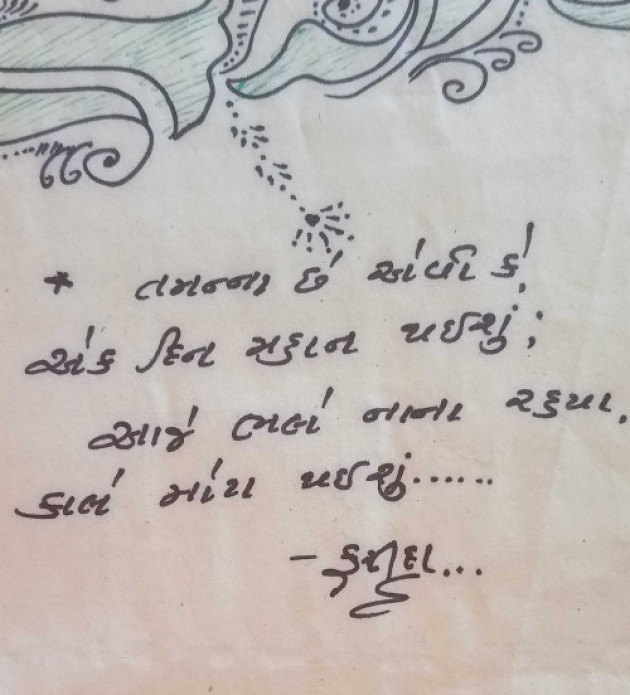 * તમન્ના છે એવી કે,
એક દિન મહાન થઈશું;
આજે ભલે નાના રહયા,
કાલે મોટા થઈશું......